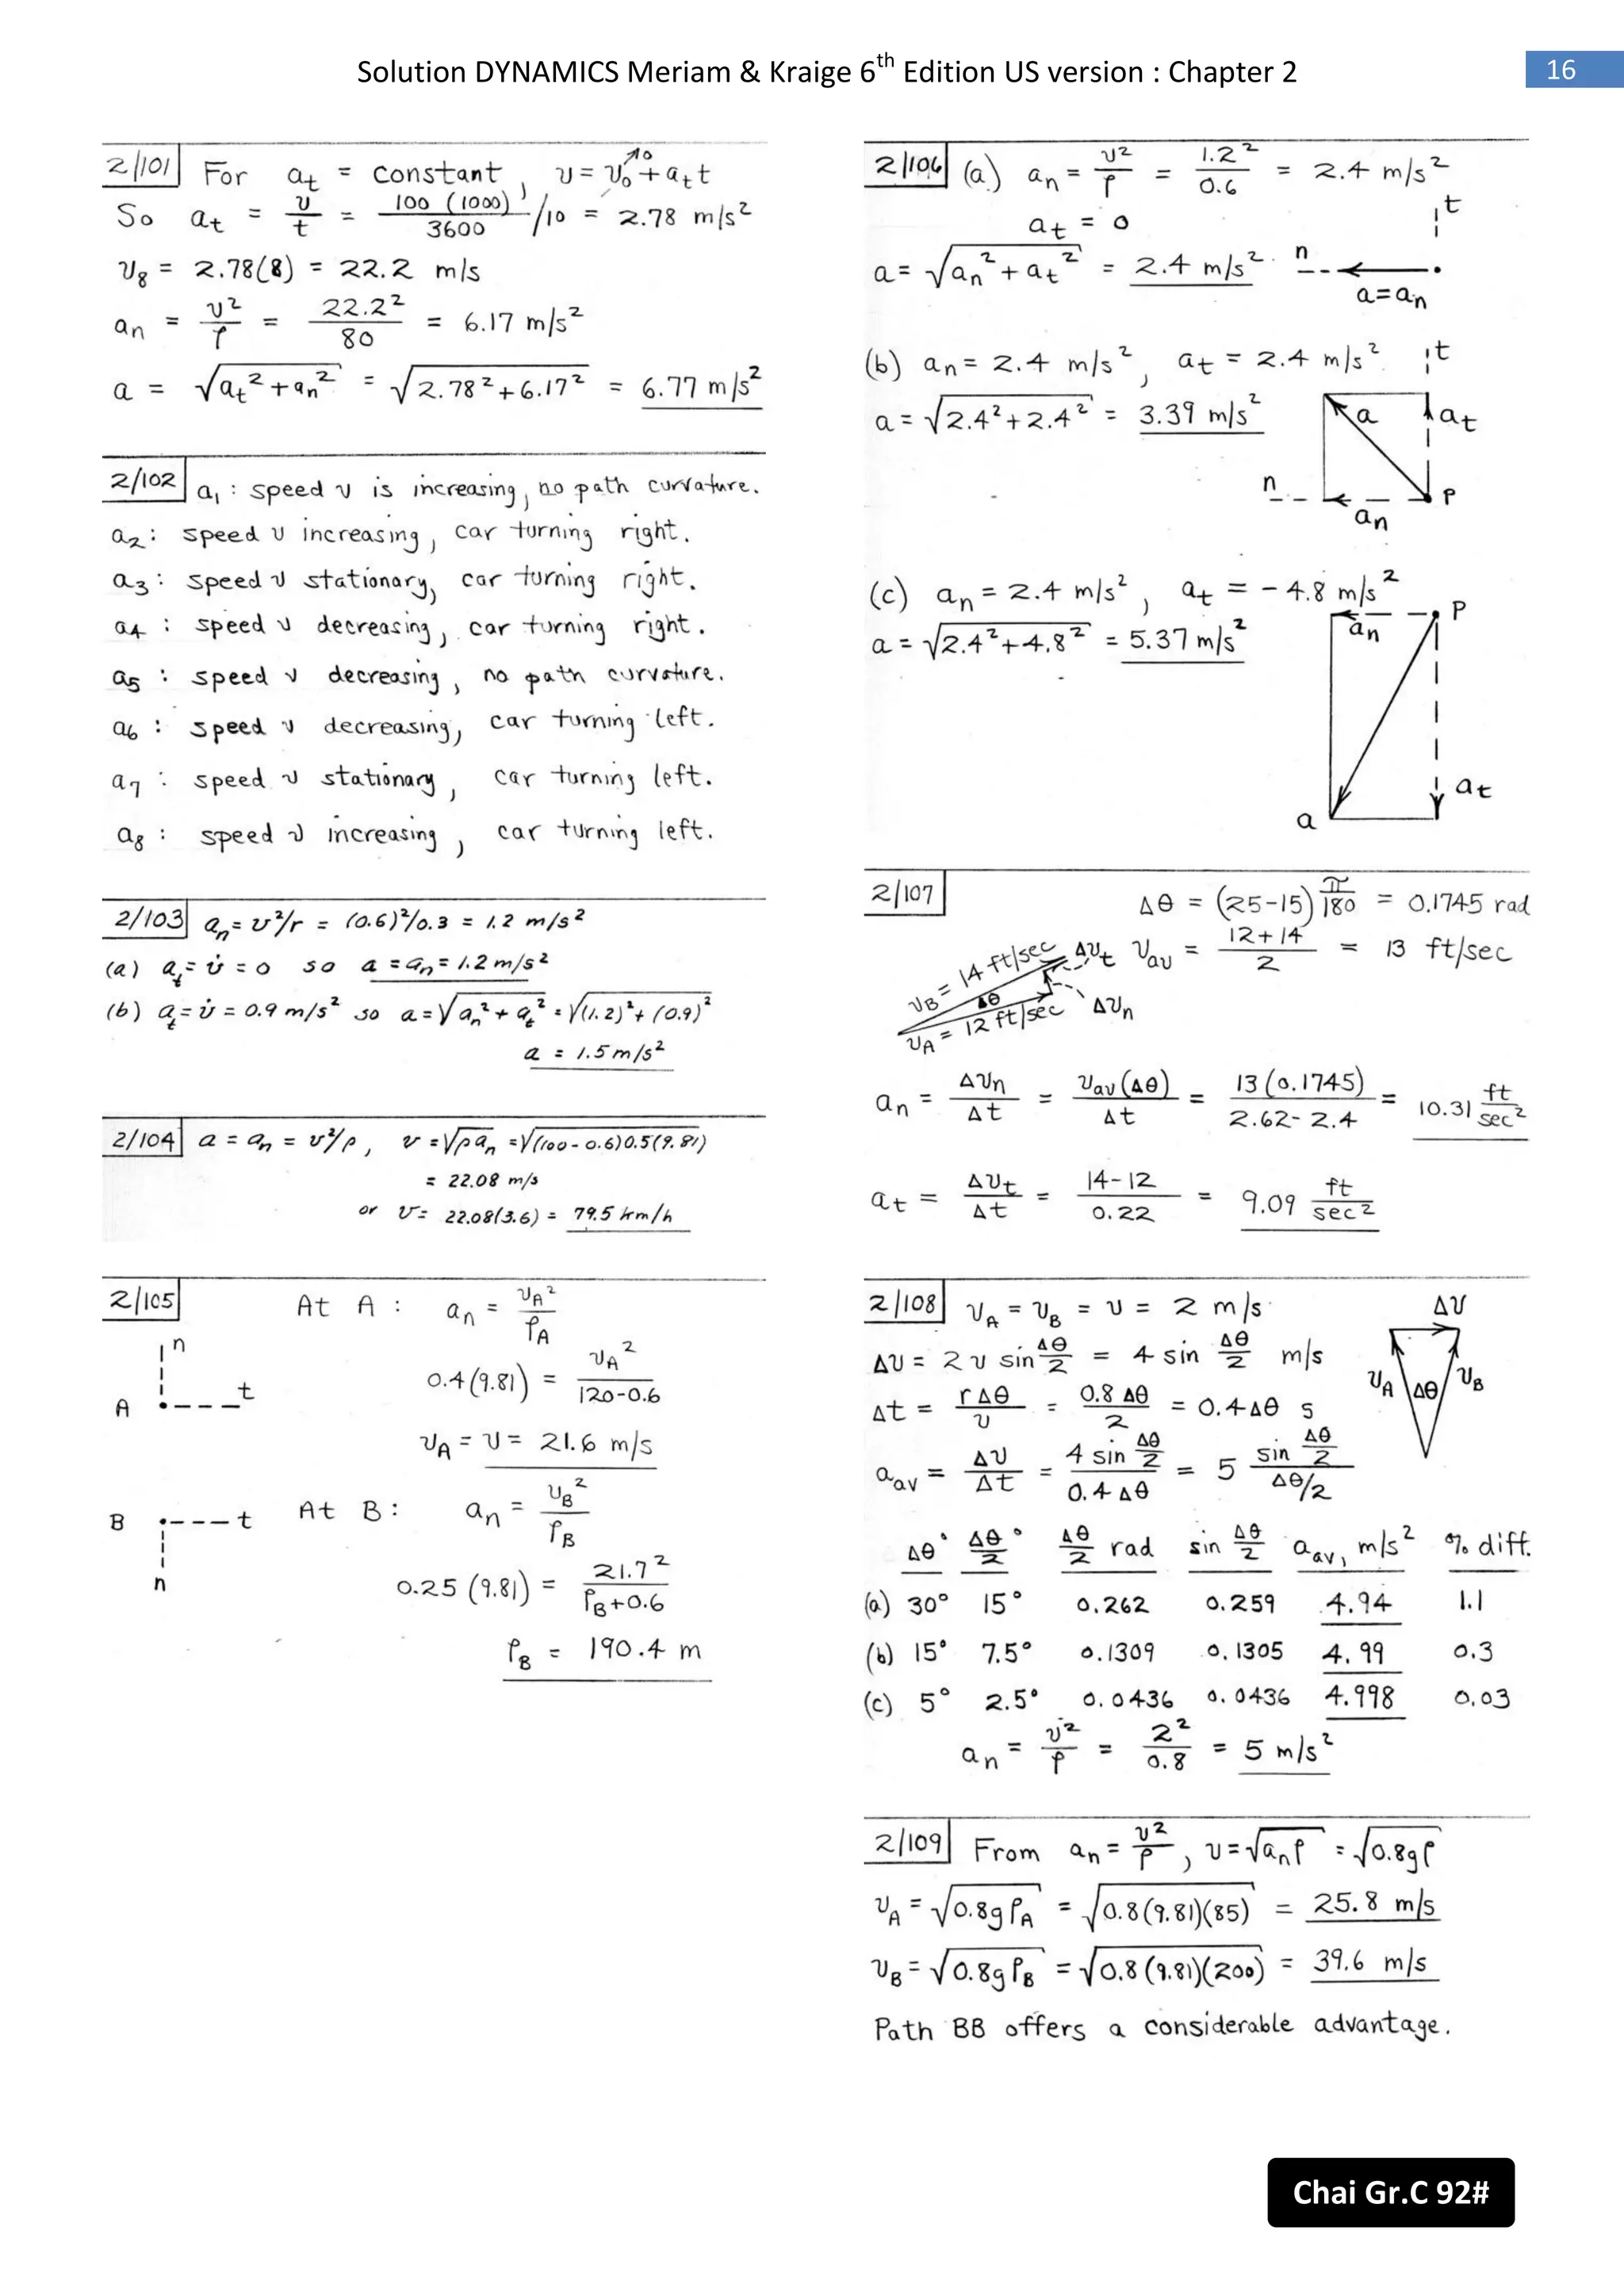 Solution DYNAMICS Meriam & Kraige 6th Edition US version : Chapter 2
16
2/101 For at = constant, v = v₀ + at t
0
So at = v/t = 100 (1000)/3600 /10 = 2.78 m/s²
v₈ = 2.78(8) = 22.2 m/s
an = v²/ρ = 22.2²/80 = 6.17 m/s²
a = √(at² + an²) = √(2.78² + 6.17²) = 6.77 m/s²
2/102 a₁ : speed v is increasing, no path curvature.
a₂ : speed v increasing, car turning right.
a₃ : speed v stationary, car turning right.
a₄ : speed v decreasing, car turning right.
a₅ : speed v decreasing, no path curvature.
a₆ : speed v decreasing, car turning left.
a₇ : speed v stationary, car turning left.
a₈ : speed v increasing, car turning left.
2/103 an = v²/r = (0.6)²/0.3 = 1.2 m/s²
(a) at = v̇ = 0 so a = an = 1.2 m/s²
(b) at = v̇ = 0.9 m/s² so a = √(an² + at²) = √((1.2)² + (0.9)²)
a = 1.5 m/s²
2/104 a = an = v²/ρ, v = √(ρ an) = √((100 - 0.6)0.5(9.81))
= 22.08 m/s
or v = 22.08(3.6) = 79.5 km/h
2/105 At A : an = vA²/ρA
n
A t
0.4(9.81) = vA²/120-0.6
vA = v = 21.6 m/s
B t
n
At B : an = vB²/ρB
0.25 (9.81) = 21.7²/ρB+0.6
ρB = 190.4 m
2/106 (a) an = v²/ρ = 1.2²/0.6 = 2.4 m/s²
at = 0
t
a = √(an² + at²) = 2.4 m/s²
n
a=an
(b) an = 2.4 m/s², at = 2.4 m/s²
t
a = √(2.4² + 2.4²) = 3.39 m/s²
a at
n P
an
(c) an = 2.4 m/s², at = - 4.8 m/s²
an P
a = √(2.4² + 4.8²) = 5.37 m/s²
at
a
2/107 Δθ = (25-15) π/180 = 0.1745 rad
vB = 14 ft/sec Δvt
vav = 12+14/2 = 13 ft/sec
Δθ
vA = 12 ft/sec Δvn
an = Δvn/Δt = vav(Δθ)/Δt = 13(0.1745)/2.62-2.4 = 10.31 ft/sec²
at = Δvt/Δt = 14-12/0.22 = 9.09 ft/sec²
2/108 vA = vB = v = 2 m/s
Δv
Δv = 2 v sin Δθ/2 = 4 sin Δθ/2 m/s
vA Δθ vB
Δt = rΔθ/v = 0.8 Δθ/2 = 0.4Δθ s
aav = Δv/Δt = 4 sin Δθ/2 / 0.4 Δθ = 5 sin Δθ/2 / Δθ/2
Δθ° Δθ/2 ° Δθ/2 rad sin Δθ/2 aav, m/s² % diff.
(a) 30° 15° 0.262 0.259 4.94 1.1
(b) 15° 7.5° 0.1309 0.1305 4.99 0.3
(c) 5° 2.5° 0.0436 0.0436 4.998 0.03
an = v²/ρ = 2²/0.8 = 5 m/s²
2/109 From an = v²/ρ, v = √(an ρ) = √(0.8gρ)
vA = √(0.8gρA) = √(0.8(9.81)(85)) = 25.8 m/s
vB = √(0.8gρB) = √(0.8(9.81)(200)) = 39.6 m/s
Path BB offers a considerable advantage.
Chai Gr.C 92#